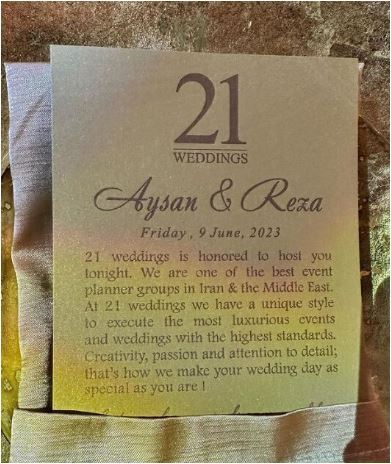 21
WEDDINGS
Aysan & Reza
Friday, 9 June, 2023
21 weddings is honored to host you
tonight. We are one of the best event
planner groups in Iran & the Middle East.
At 21 weddings we have a unique style
to execute the most luxurious events
and weddings with the highest standards.
Creativity, passion and attention to detail;
that's how we make your wedding day as
special as you are !